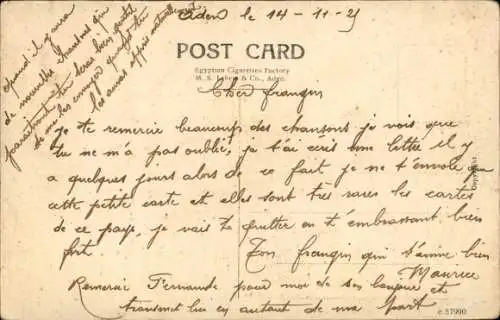 Aden le 14-11-25
quand il y aura
de nouvelles chansons qui
paraitront tu seras bien gentil
de me les envoyer quand tu
les auras appris
POST CARD
Egyptian Cigarettes Factory
M. S. & Co., Aden.
Cher frangin
je te remercie beaucoup des chansons je vois que
tu ne m'a pas oublié, je t'ai ecris une lettre il y
a quelques jours alors de ce fait je ne t'envoie que
cette petite carte et elles sont très rares les cartes
de ce pays, je vais te quitter en t'embrassant bien
fort.
Ton frangin qui t'aime bien
Maurice
Remercie Fernande pour moi de son bonjour et
transmet lui en autant de ma part
c.57990